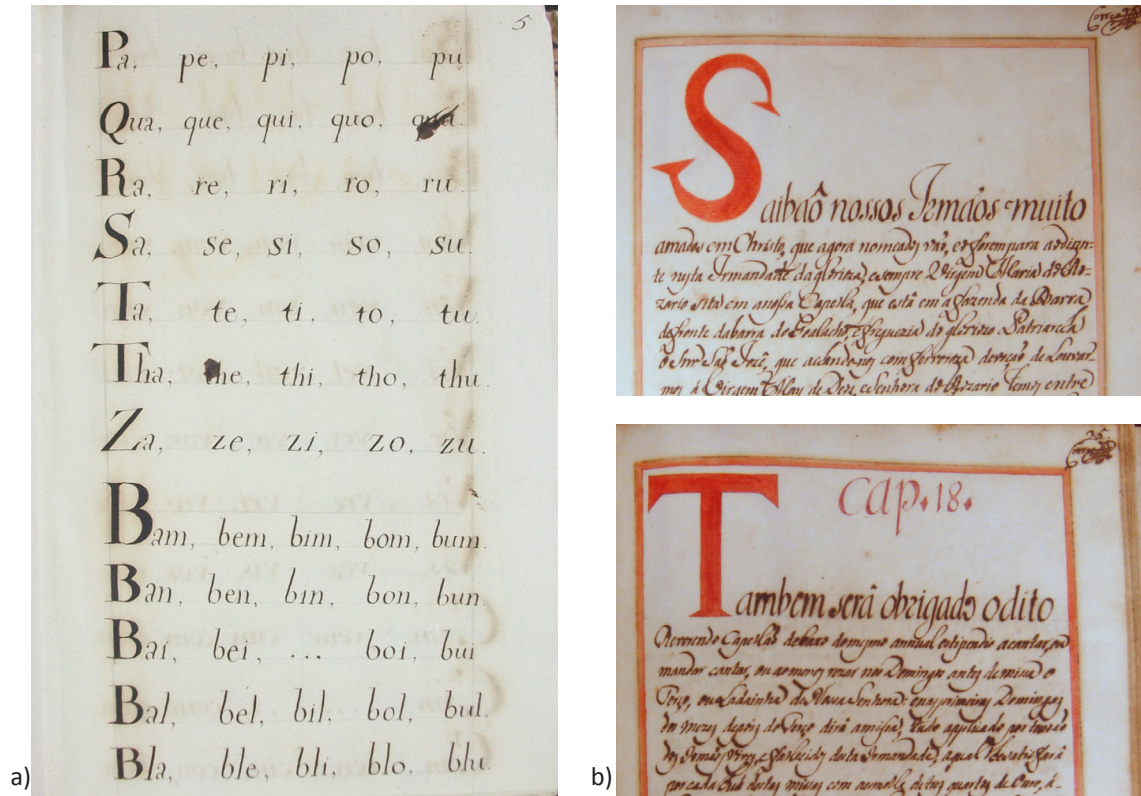 5
Pa, pe, pi, po, pu
Qua, que, qui, quo, qua.
Ra, re, ri, ro, ru
Sa, se, si, so, su.
Ta, te, ti, to, tu.
Tha, the, thi, tho, thu.
Za, ze, zi, zo, zu.
Bam, bem, bim, bom, bum.
Ban, ben, bin, bon, bun.
Bai, bei, ... boi, bui
Bal, bel, bil, bol, bul.
Bla, ble, bli, blo, blu.
a)
Saibaõ nossos Irmãos muito
amados em Christo, que agora nomeados vaõ, e forem para adian-
te nesta Irmandade da glorioza, e sempre Virgem Maria do Ro-
zario sita em a nossa Capella, que está em a fazenda da Barra
defronte da barra do Gualacho, e freguezia do gloriozo Patriarcha
o Snr Saõ Jozê, que acendendo nos com fervoroza devoçaõ de Louvar-
mos á Virgem May de Deos, e Senhora do Rozario Temos entre
25
Cap. 18.
Tambem serâ obrigado o dito
Reverendo Capellaõ debaixo do mesmo annual estipendio a cantar, ou
mandar cantar, ou ao menos rezar nos Domingos antes da missa o
Terço, ou a Ladainha de Nossa Senhora: e nos primeiros Domingos
dos mezes depois do Terço dirá a missa, tudo applicado por tençaõ
dos Irmãos vivos, e falecidos desta Irmandade, a qual lhe satisfará
por cada huã destas missas com a esmola de tres quartos de Ouro, á-
b)